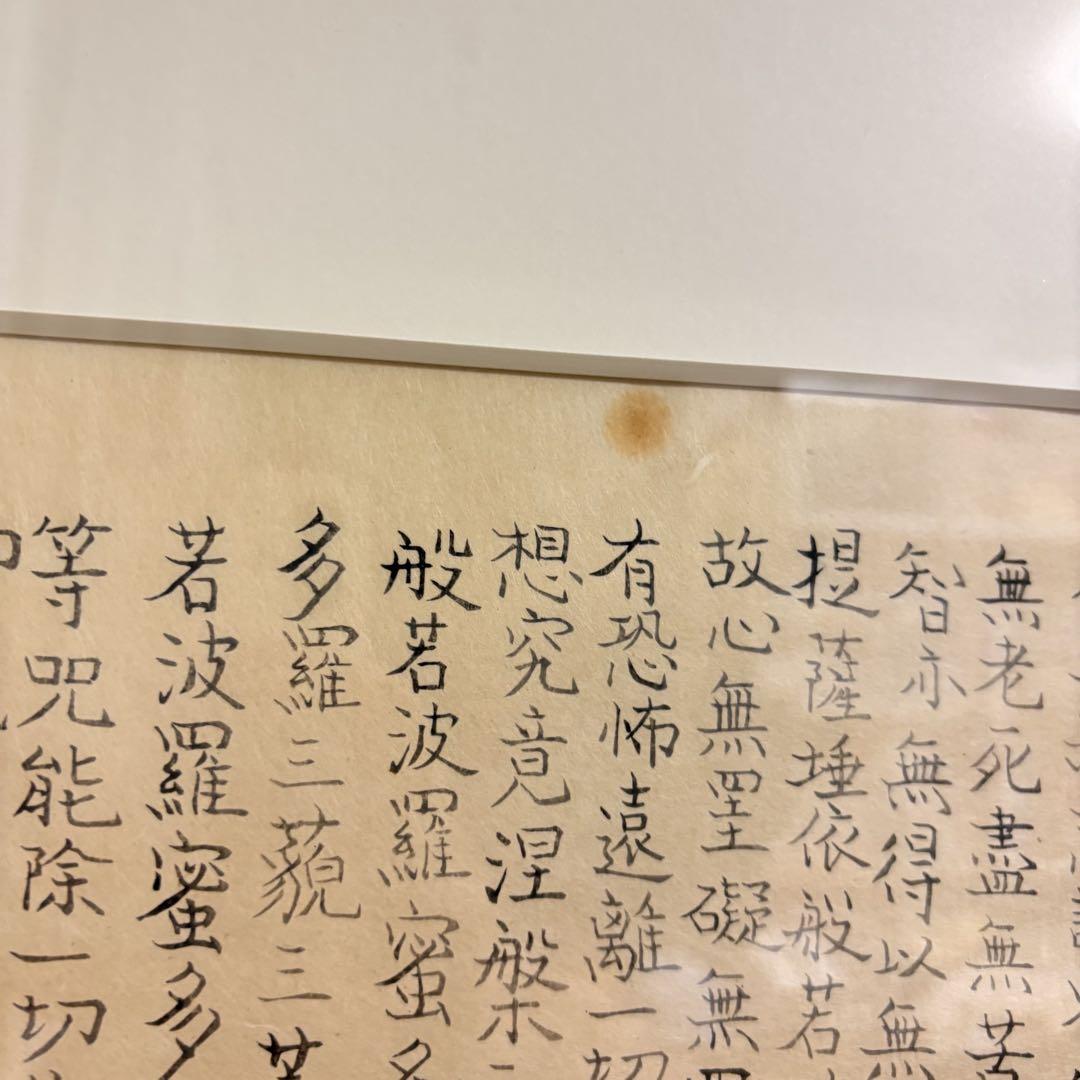 無老死盡無苦
智亦無得以無
提薩埵依般若
故心無罣礙無
有恐怖遠離一切
想究竟涅槃
般若波羅蜜多
多羅三藐三菩
若波羅蜜多
等咒能除一切